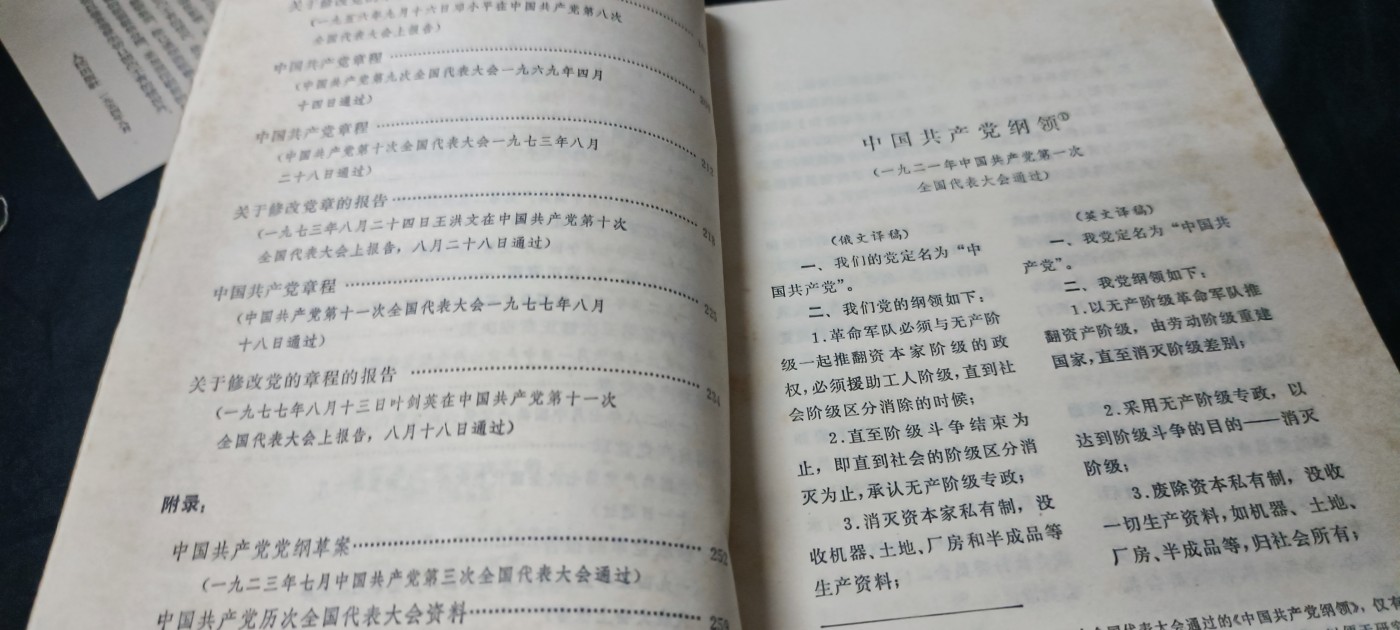 关于修改党
(一九五六年九月十六日邓小平在中国共产党第八次
全国代表大会上报告)
中国共产党章程
(中国共产党第九次全国代表大会一九六九年四月
十四日通过)
中国共产党章程 212
(中国共产党第十次全国代表大会一九七三年八月
二十八日通过)
关于修改党章的报告 219
(一九七三年八月二十四日王洪文在中国共产党第十次
全国代表大会上报告，八月二十八日通过)
中国共产党章程 225
(中国共产党第十一次全国代表大会一九七七年八月
十八日通过)
关于修改党的章程的报告 234
(一九七七年八月十三日叶剑英在中国共产党第十一次
全国代表大会上报告，八月十八日通过)
附录：
中国共产党党纲草案 252
(一九二三年七月中国共产党第三次全国代表大会通过)
中国共产党历次全国代表大会资料 259
中国共产党纲领①
(一九二一年中国共产党第一次
全国代表大会通过)
(俄文译稿)
一、我们的党定名为“中
国共产党”。
二、我们党的纲领如下：
1.革命军队必须与无产阶
级一起推翻资本家阶级的政
权，必须援助工人阶级，直到社
会阶级区分消除的时候；
2.直至阶级斗争结束为
止，即直到社会的阶级区分消
灭为止，承认无产阶级专政；
3.消灭资本家私有制，没
收机器、土地、厂房和半成品等
生产资料；
(英文译稿)
一、我党定名为“中国共
产党”。
二、我党纲领如下：
1.以无产阶级革命军队推
翻资产阶级，由劳动阶级重建
国家，直至消灭阶级差别；
2.采用无产阶级专政，以
达到阶级斗争的目的——消灭
阶级；
3.废除资本私有制，没收
一切生产资料，如机器、土地、
厂房、半成品等，归社会所有；
全国代表大会通过的《中国共产党纲领》，仅有